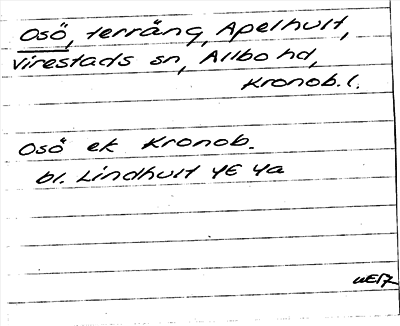 Osö, terräng, Apelhult,
Virestads sn, Allbo hd,
Kronob. l.
Osö ek Kronob.
bl. Lindhult 4E 4a